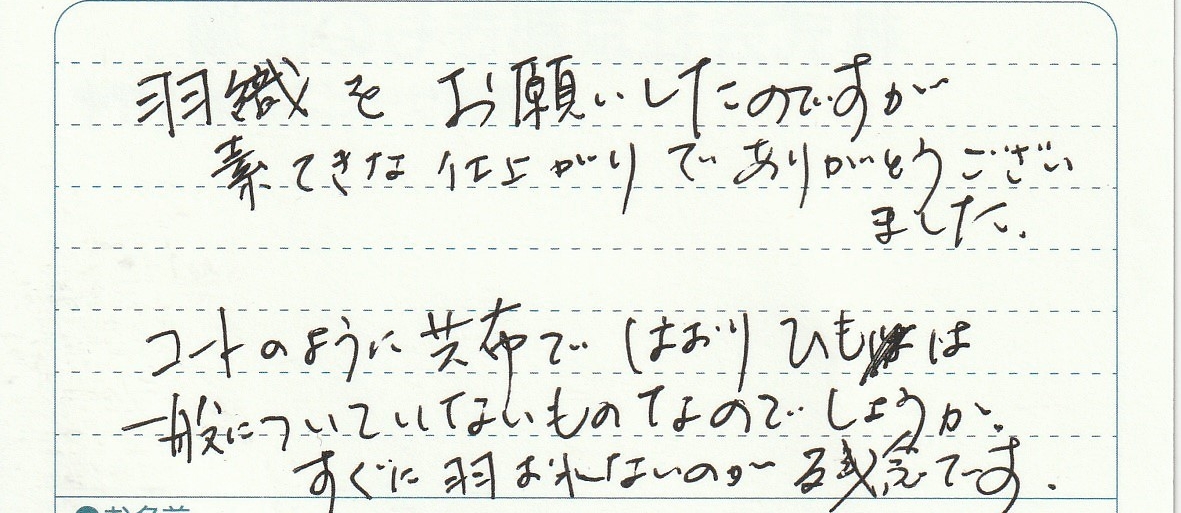 羽織を お願いしたのですが
素てきな 仕上がりで ありがとうござい
ました.
コートのように 共布で はおり ひもは
一般についていないものなのでしょうか.
すぐに 羽おれないのが 残念です.